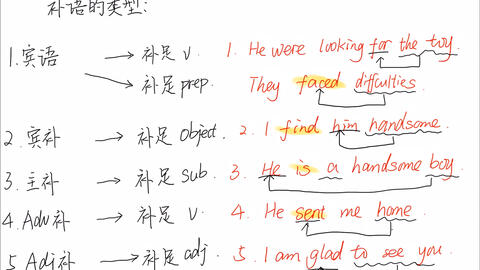 补语的类型:
1.宾语 → 补足 v. 1. He were looking for the toy.
→ 补足 prep. They faced diffculties.
2. 宾补 → 补足 object. 2. I find him handsome.
3. 主补 → 补足 sub. 3. He is a handsome boy.
4. Adv补 → 补足 v. 4. He sent me home.
5 Adj补 → 补足 adj. 5. I am glad to see you.